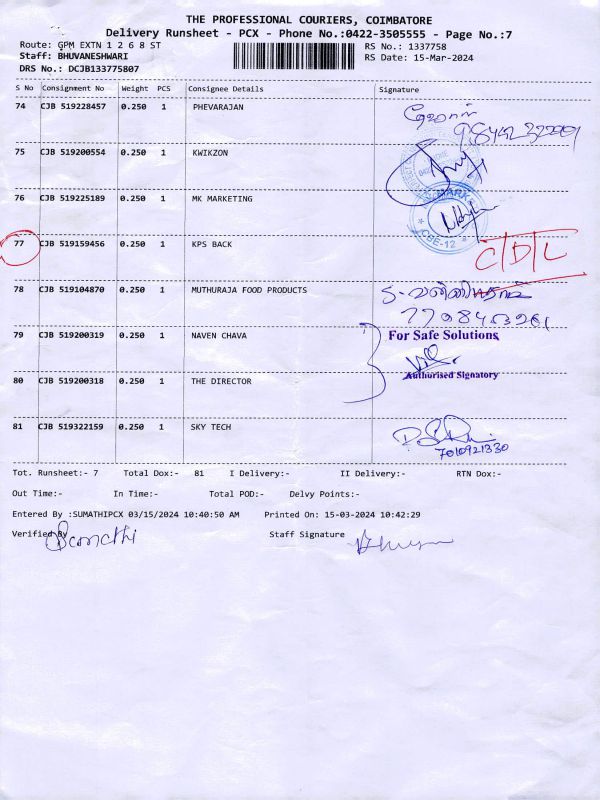 THE PROFESSIONAL COURIERS, COIMBATORE
Delivery Runsheet - PCX - Phone No.:0422-3505555 - Page No.:7
Route: GPM EXTN 1 2 6 8 ST
RS No.: 1337758
Staff: BHUVANESHWARI
RS Date: 15-Mar-2024
DRS No.: DCJB133775807
S No Consignment No Weight PCS Consignee Details Signature
74 CJB 519228457 0.250 1 PHEVARAJAN
75 CJB 519200554 0.250 1 KWIKZON
76 CJB 519225189 0.250 1 MK MARKETING
CBE-12
77 CJB 519159456 0.250 1 KPS BACK
C/D/L
78 CJB 519104870 0.250 1 MUTHURAJA FOOD PRODUCTS
79 CJB 519200319 0.250 1 NAVEN CHAVA
For Safe Solutions
Authorised Signatory
80 CJB 519200318 0.250 1 THE DIRECTOR
81 CJB 519322159 0.250 1 SKY TECH
7010921330
Tot. Runsheet:- 7 Total Dox:- 81 I Delivery:- II Delivery:- RTN Dox:-
Out Time:- In Time:- Total POD:- Delvy Points:-
Entered By :SUMATHIPCX 03/15/2024 10:40:50 AM Printed On: 15-03-2024 10:42:29
Verified By Staff Signature